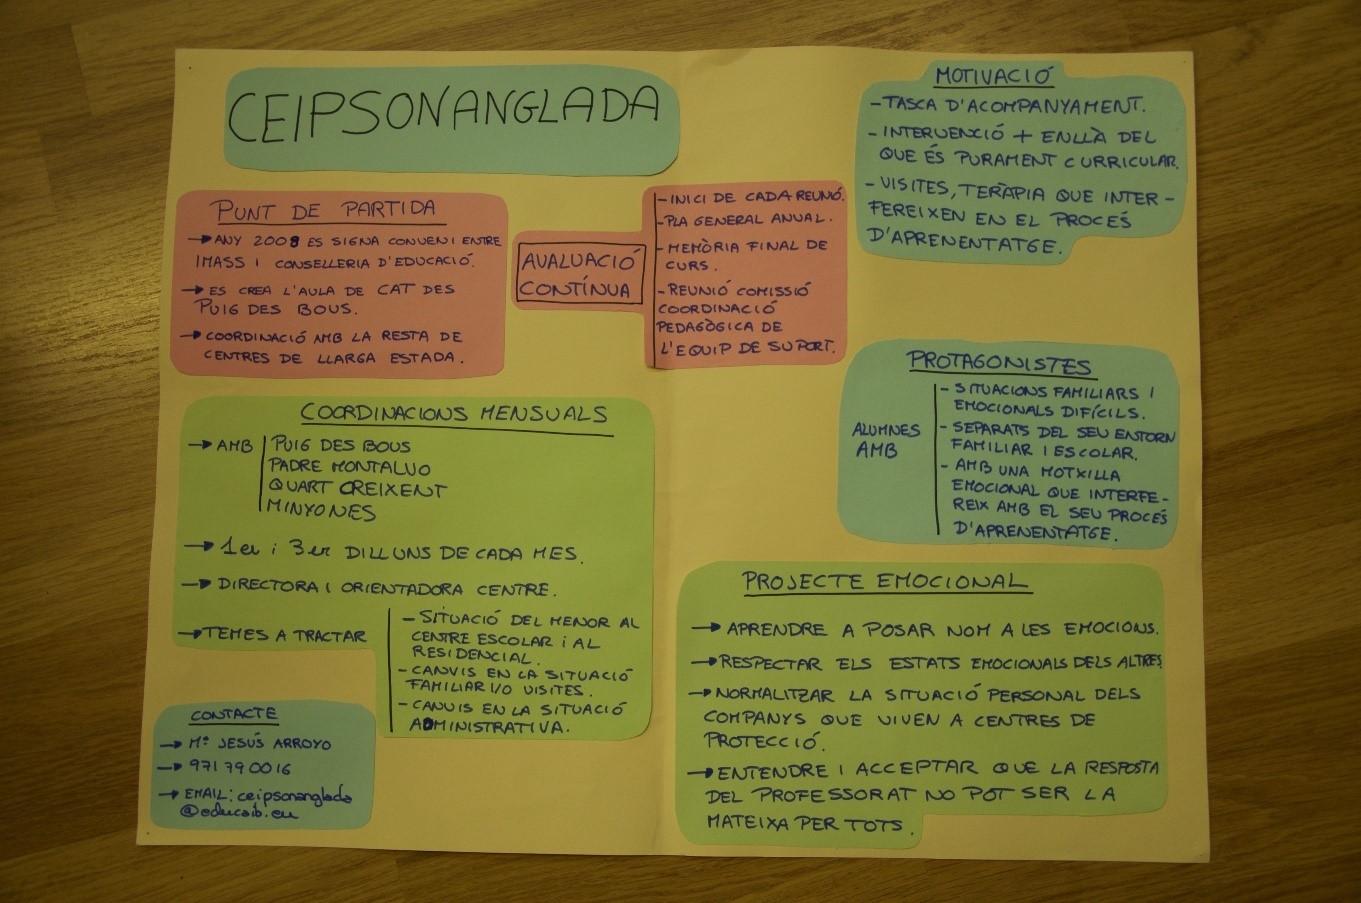 CEIPSONANGLADA
PUNT DE PARTIDA
→ ANY 2008 ES SIGNA CONVENI ENTRE
IMASS I CONSELLERIA D'EDUCACIÓ.
→ ES CREA L'AULA DE CAT DES
PUIG DES BOUS.
→ COORDINACIÓ AMB LA RESTA DE
CENTRES DE LLARGA ESTADA.
AVALUACIÓ
CONTÍNUA
- INICI DE CADA REUNIÓ.
- PLA GENERAL ANUAL.
- MEMÒRIA FINAL DE
CURS.
- REUNIÓ COMISSIÓ
COORDINACIÓ
PEDAGÒGICA DE
L'EQUIP DE SUPORT.
MOTIVACIÓ
- TASCA D'ACOMPANYAMENT.
- INTERVENCIÓ + ENLLÀ DEL
QUE ÉS PURAMENT CURRICULAR.
- VISITES, TERÀPIA QUE INTER-
FEREIXEN EN EL PROCÉS
D'APRENENTATGE.
PROTAGONISTES
ALUMNES
AMB
- SITUACIONS FAMILIARS I
EMOCIONALS DIFÍCILS.
- SEPARATS DEL SEU ENTORN
FAMILIAR I ESCOLAR.
- AMB UNA MOTXILLA
EMOCIONAL QUE INTERFE-
REIX AMB EL SEU PROCÉS
D'APRENENTATGE.
COORDINACIONS MENSUALS
→ AMB
PUIG DES BOUS
PADRE MONTALVO
QUART CREIXENT
MINYONES
→ 1er i 3er DILLUNS DE CADA MES.
→ DIRECTORA I ORIENTADORA CENTRE.
→ TEMES A TRACTAR
- SITUACIÓ DEL MENOR AL
CENTRE ESCOLAR i AL
RESIDENCIAL.
- CANVIS EN LA SITUACIÓ
FAMILIAR I/O VISITES.
- CANVIS EN LA SITUACIÓ
ADMINISTRATIVA.
PROJECTE EMOCIONAL
→ APRENDRE A POSAR NOM A LES EMOCIONS.
→ RESPECTAR ELS ESTATS EMOCIONALS DELS ALTRES
→ NORMALITZAR LA SITUACIÓ PERSONAL DELS
COMPANYS QUE VIVEN A CENTRES DE
PROTECCIÓ.
→ ENTENDRE I ACCEPTAR QUE LA RESPOSTA
DEL PROFESSORAT NO POT SER LA
MATEIXA PER TOTS.
CONTACTE
→ Mª JESÚS ARROYO
→ 971 79 00 16
→ EMAIL: ceipsonanglada
@educaib.eu